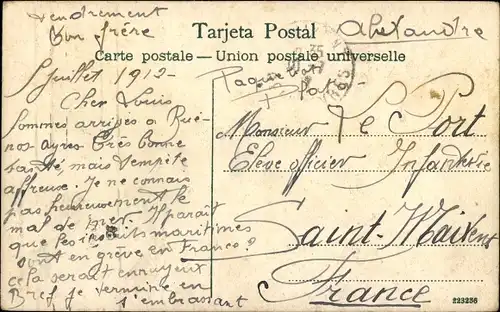 Tarjeta Postal
Carte postale — Union postale universelle
5 Juillet 1912 -
Cher Louis
Sommes arrives a Bué-
nos ayres très bonne
santé, mais tempête
affreuse. Je ne connais
pas heureusement le
mal de mer. Il paraît
que les inscrits maritimes
sont en grève en France?
cela serait ennuyeux
Bref je termine en
t'embrassant
tendrement
ton frère
Alexandre
Paquebot
Monsieur Le Port
Eleve officier Infanterie
Saint-Maixent
France
223256